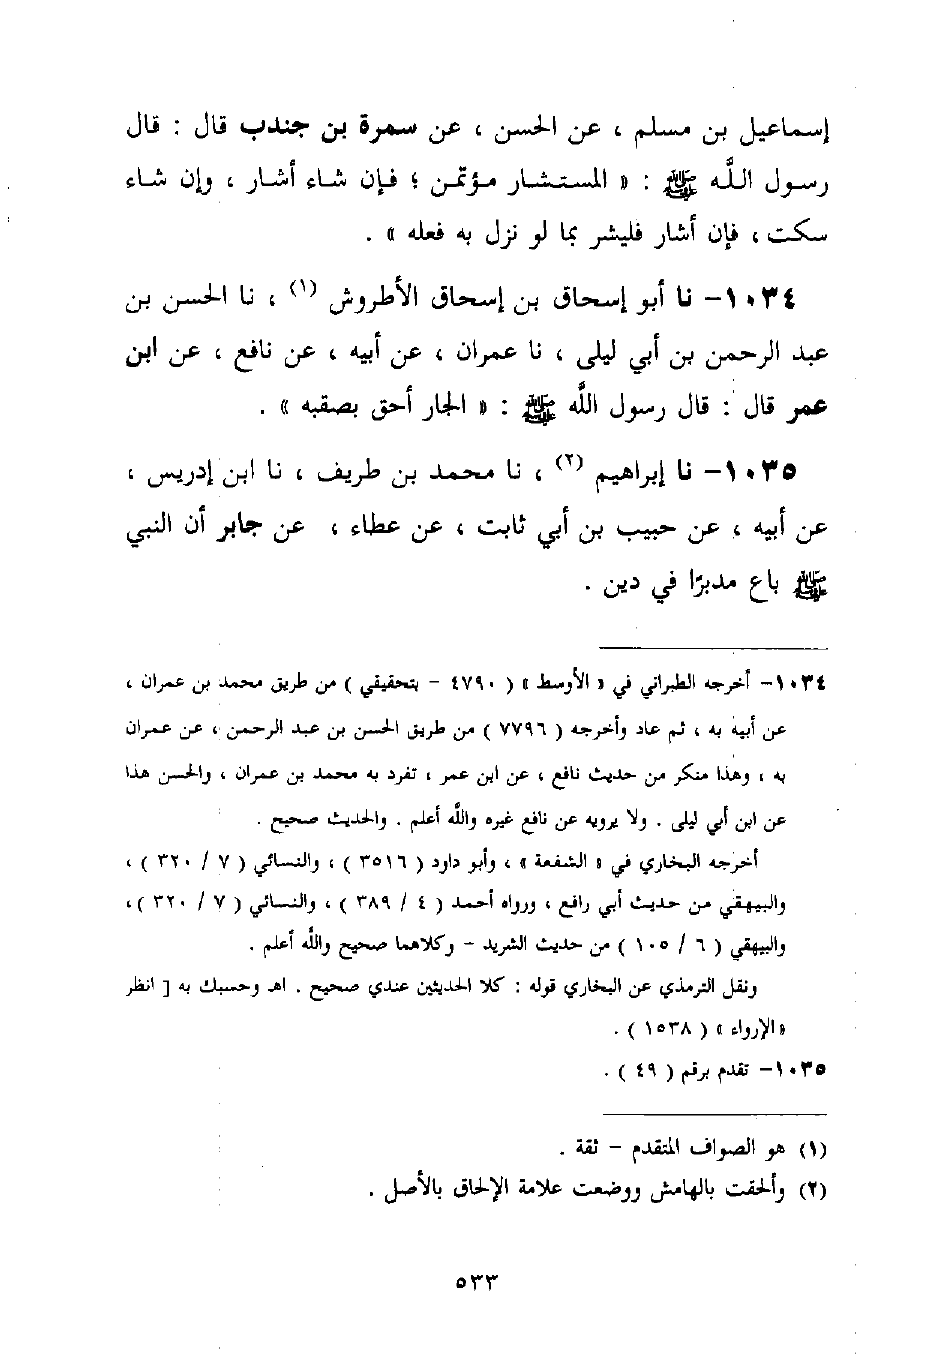 إسماعيل بن مسلم ، عن الحسن ، عن سمرة بن جندب قال : قال
رسول اللَّه ﷺ : « المستشار مؤتمن ؛ فإن شاء أشار ، وإن شاء
سكت ، فإن أشار فليشر بما لو نزل به فعله » .
١٠٣٤- نا أبو إسحاق بن إسحاق الأطروش (١) ، نا الحسن بن
عبد الرحمن بن أبي ليلى ، نا عمران ، عن أبيه ، عن نافع ، عن ابن
عمر قال : قال رسول اللَّه ﷺ : « الجار أحق بصقبه » .
١٠٣٥- نا إبراهيم (٢) ، نا محمد بن طريف ، نا ابن إدريس ،
عن أبيه ، عن حبيب بن أبي ثابت ، عن عطاء ، عن جابر أن النبي
ﷺ باع مدبرًا في دين .
١٠٣٤- أخرجه الطبراني في « الأوسط » ( ٤٧٩٠ - بتحقيقي ) من طريق محمد بن عمران ،
عن أبيه به ، ثم عاد وأخرجه ( ٧٧٩٦ ) من طريق الحسن بن عبد الرحمن ، عن عمران
به ، وهذا منكر من حديث نافع ، عن ابن عمر ، تفرد به محمد بن عمران ، والحسن هذا
عن ابن أبي ليلى . ولا يرويه عن نافع غيره واللَّه أعلم . والحديث صحيح .
أخرجه البخاري في « الشفعة » ، وأبو داود ( ٣٥١٦ ) ، والنسائي ( ٧ / ٣٢٠ ) ،
والبيهقي من حديث أبي رافع ، ورواه أحمد ( ٤ / ٣٨٩ ) ، والنسائي ( ٧ / ٣٢٠ ) ،
والبيهقي ( ٦ / ١٠٥ ) من حديث الشريد - وكلاهما صحيح واللَّه أعلم .
ونقل الترمذي عن البخاري قوله : كلا الحديثين عندي صحيح . اهـ وحسبك به [ انظر
« الإرواء » ( ١٥٣٨ ) .
١٠٣٥- تقدم برقم ( ٤٩ ) .
(١) هو الصواف المتقدم - ثقة .
(٢) وألحقت بالهامش ووضعت علامة الإلحاق بالأصل .
٥٣٣